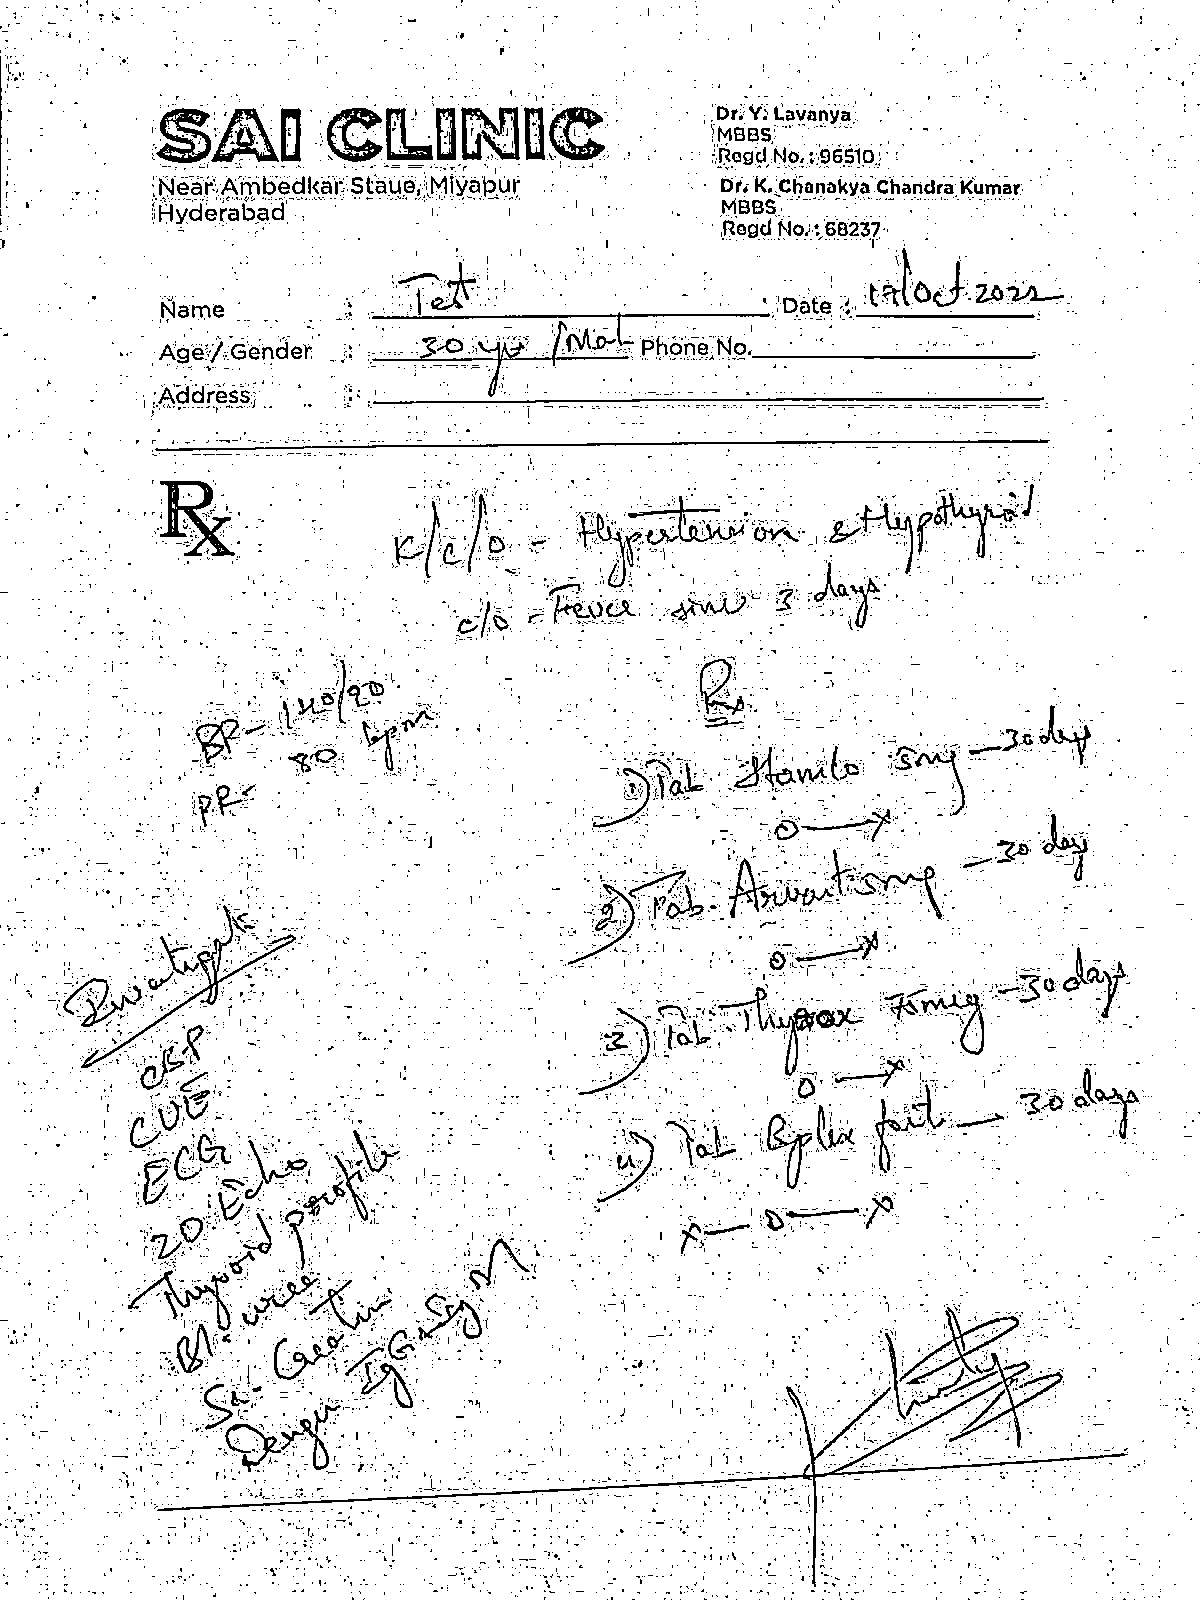 SAI CLINIC
Near Ambedkar Staue, Miyapur
Hyderabad
Dr. Y. Lavanya
MBBS
Regd No. : 96510
Dr. K. Chanakya Chandra Kumar
MBBS
Regd No. : 68237
Name : Test Date : 17/Oct 2022
Age / Gender : 30 yr /Male Phone No.
Address :
Rx
K/c/o - Hypertension & Hypothyroid
c/o - Fever since 3 days
BP - 140/90
PR - 80 bpm
Rx
1) Tab Stamlo 5mg - 30 days
o — x
2) Tab. 5mg - 30 days
o — x
3) Tab Thyrox 75mcg - 30 days
o — x
4) Tab Bplex fort - 30 days
x — o — x
CBP
CUE
ECG
2D Echo
Thyroid profile
Bl. urea
Sr. Creatin
Dengu IgG & IgM